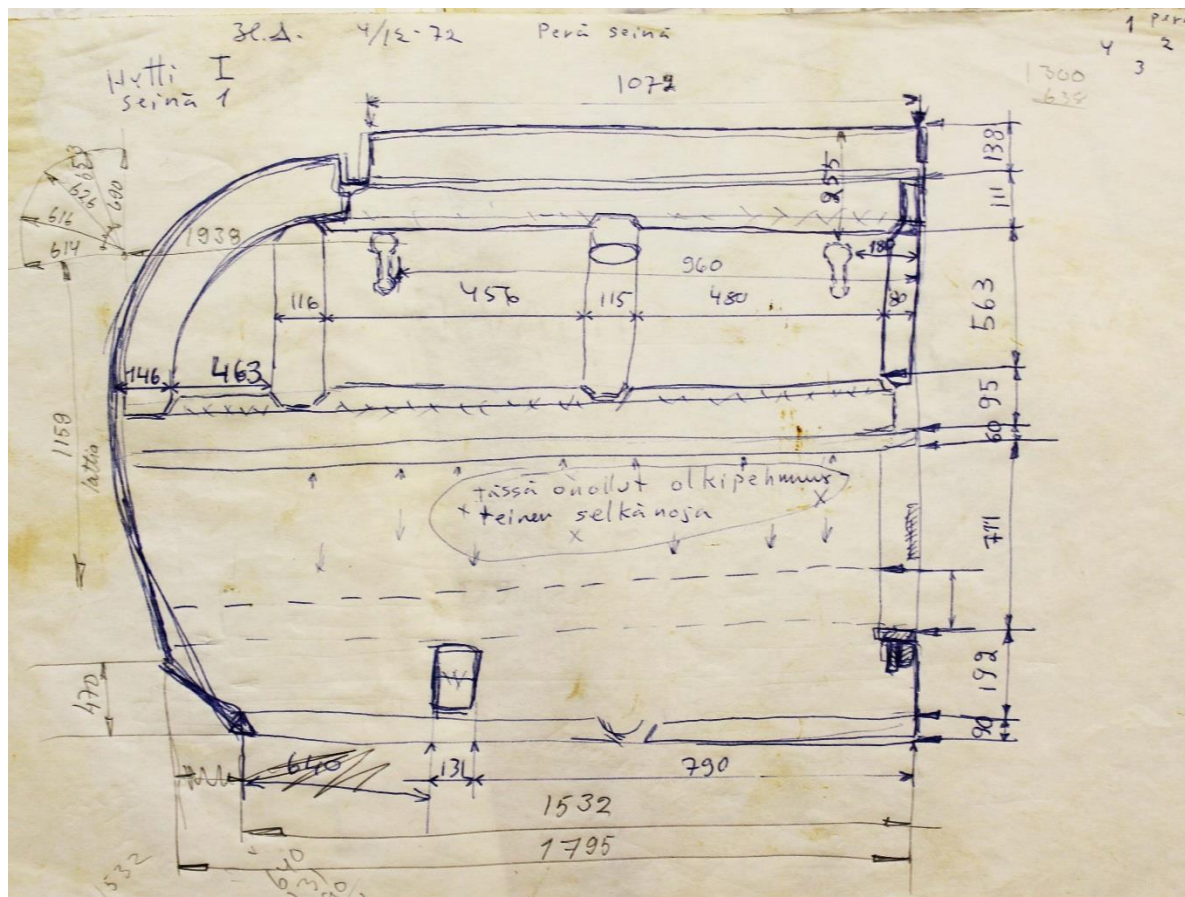 4/12-72 Perä seinä
1
4 2
3
Hytti I
seinä 1
1300
638
1072
138
255
111
690
626
616
614
1938
180
960
116
456
115
480
80
563
146
463
95
60
1159
lattia
tässä on ollut olkipehmus
teinen selkänoja
711
192
470
90
640
131
790
1532
1795
1532
640